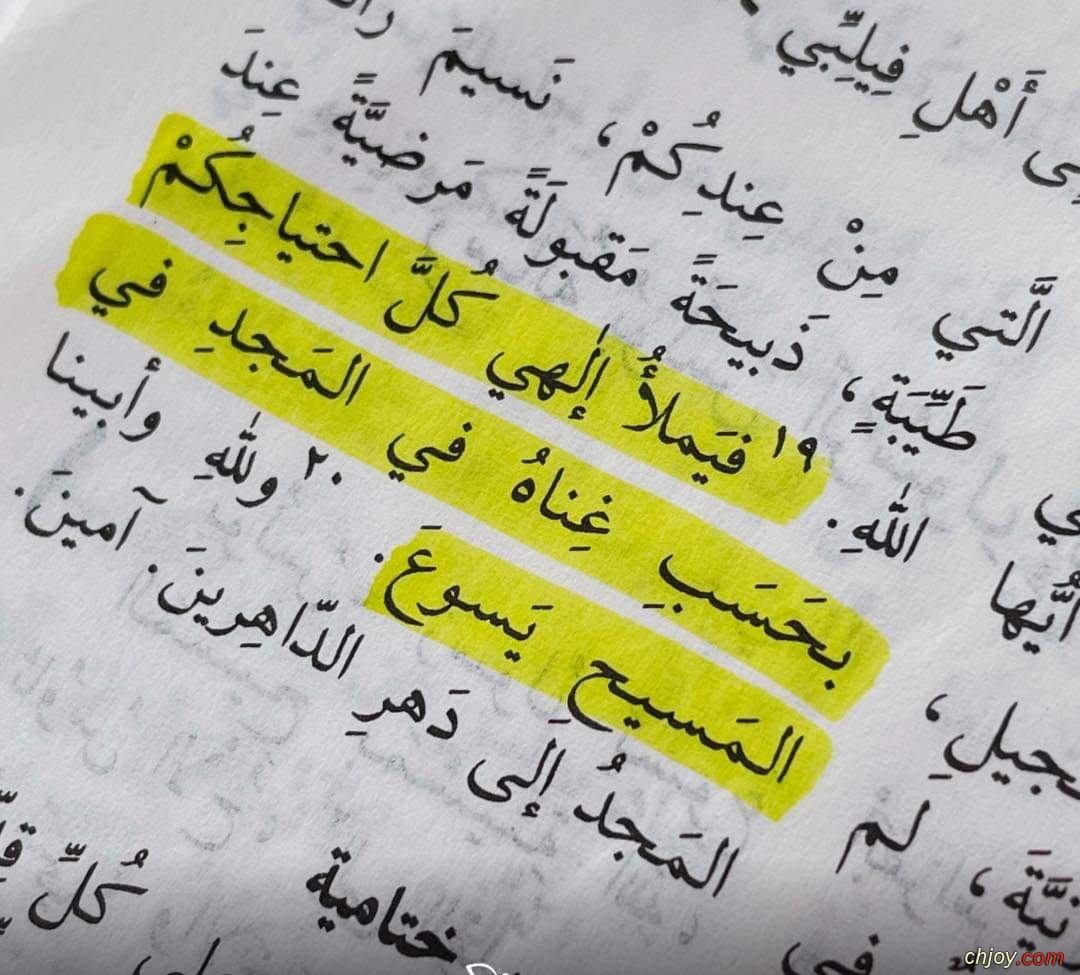 أَهْلِ فِيلِبِّي
الَّتي مِنْ عِندِكُمْ، نَسيمَ
طَيِّبَةٍ، ذَبيحَةً مَقبولَةً مَرضيَّةً عِندَ
اللهِ. ١٩ فيَملأُ إلٰهي كُلَّ احتياجِكُمْ
بحَسَبِ غِناهُ في المَجدِ في
المَسيحِ يَسوعَ. ٢٠ وللهِ وأبينا
المَجدُ إلَى دَهرِ الدّاهِرينَ. آمينَ.
ختامية
كُلِّ
أيُّها
لم
في
chjoy.com